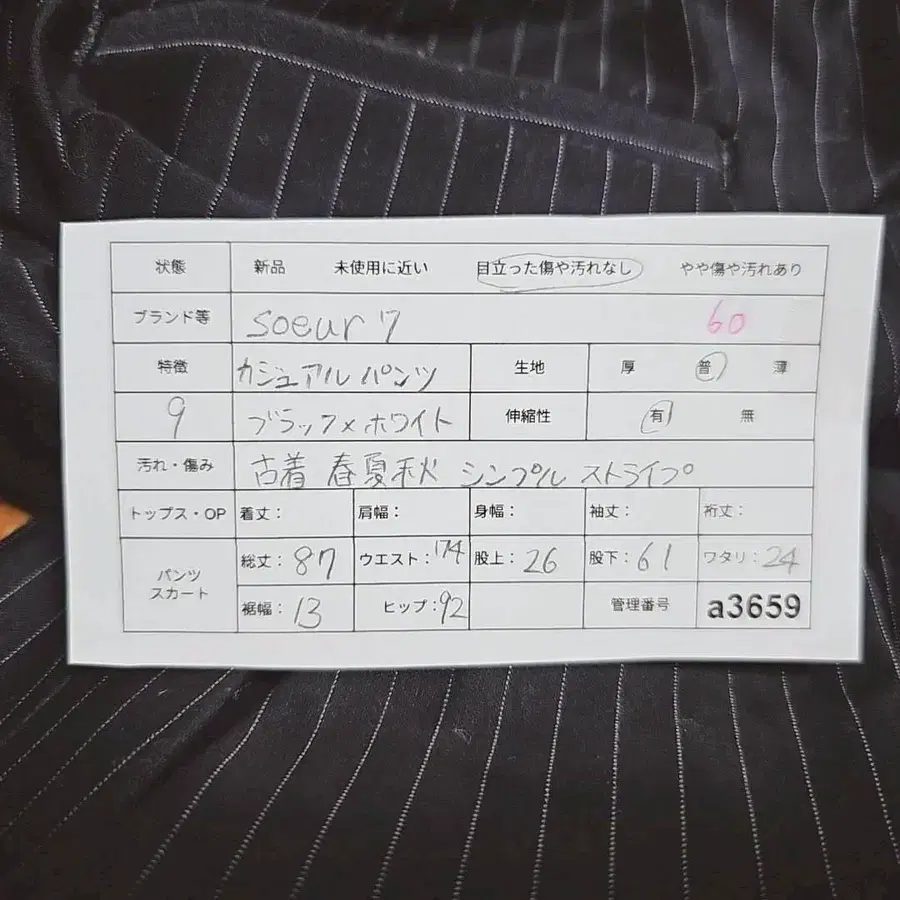 状態 新品 未使用に近い 目立った傷や汚れなし やや傷や汚れあり
ブランド等 soeur7 60
特徴 カジュアルパンツ 生地 厚 普 薄
9 ブラック×ホワイト 伸縮性 有 無
汚れ・傷み 古着 春夏秋 シンプル ストライプ
トップス・OP 着丈: 肩幅: 身幅: 袖丈: 裄丈:
パンツ スカート 総丈: 87 ウエスト: 174 股上: 26 股下: 61 ワタリ: 24
裾幅: 13 ヒップ: 92 管理番号 a3659